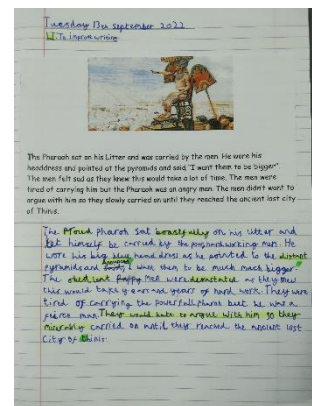 Tuesday 13th September 2022
To improve writing
The Pharaoh sat on his Litter and was carried by the men. He wore his
headdress and pointed at the pyramids and said "I want them to be bigger".
The men felt sad as they knew this would take a lot of time. The men were
tired of carrying him but the Pharaoh was an angry man. The men didn't want to
argue with him so they slowly carried on until they reached the ancient lost city
of Thinis.
The Proud pharoh sat boastfully on his litter and
let himself be carried by the poor hard working men. He
wore his big blue head dress as he pointed to the distant
pyramids and I want them to be much much bigger.
The obedient men were devastated as they knew
this would take years and years of hard work. They were
tired of carrying the powerfull pharoh but he was a
fierce man. They would hate to argue with him so they
miserably carried on until they reached the ancient lost
City of thinis.